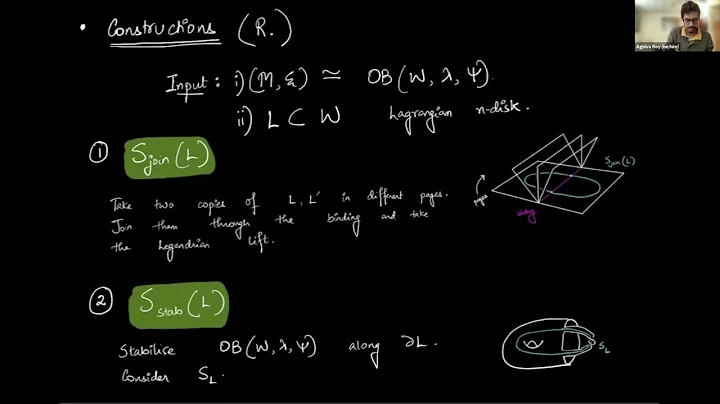 Agniva Roy (he/him)
• Constructions (R.)
Input : i) (M, ξ) ≃ OB (W, λ, Ψ).
ii) L ⊂ W Lagrangian n-disk.
① S_join (L)
Take two copies of L, L' in different pages.
Join them through the binding and take
the Legendrian lift.
S_join (L)
pages
binding
② S_stab (L)
Stabilise OB (W, λ, Ψ) along ∂L.
Consider S_L.
W
S_L